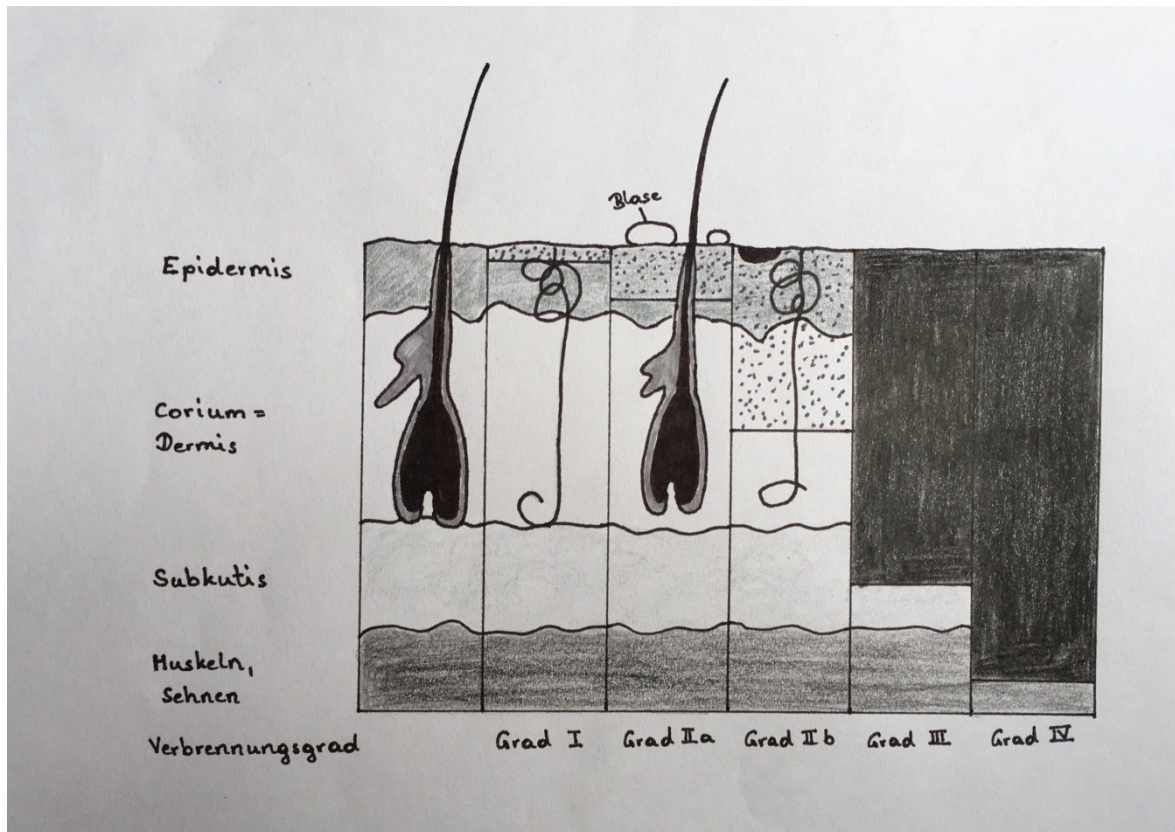 Blase
Epidermis
Corium =
Dermis
Subkutis
Muskeln,
Sehnen
Verbrennungsgrad Grad I Grad IIa Grad IIb Grad III Grad IV